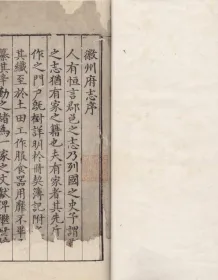 徽州府志序
人有恒言郡邑之志乃列國之史予謂
之志猶有家之籍也夫有家者其先所
作之門戶既樹詳明於冊契簿記附
其纖至於土田工作服食器用靡不畢
勤之緒為一家之文獻俾繼世